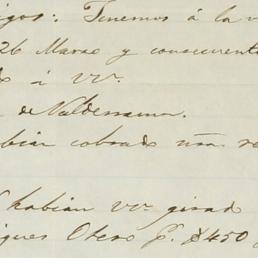 igos: Tenemos á la v
26 Marzo y consecuent
o á VV.
de Valderrama.
abian cobrado una re
habian VV. girad
igues Otero p. $450